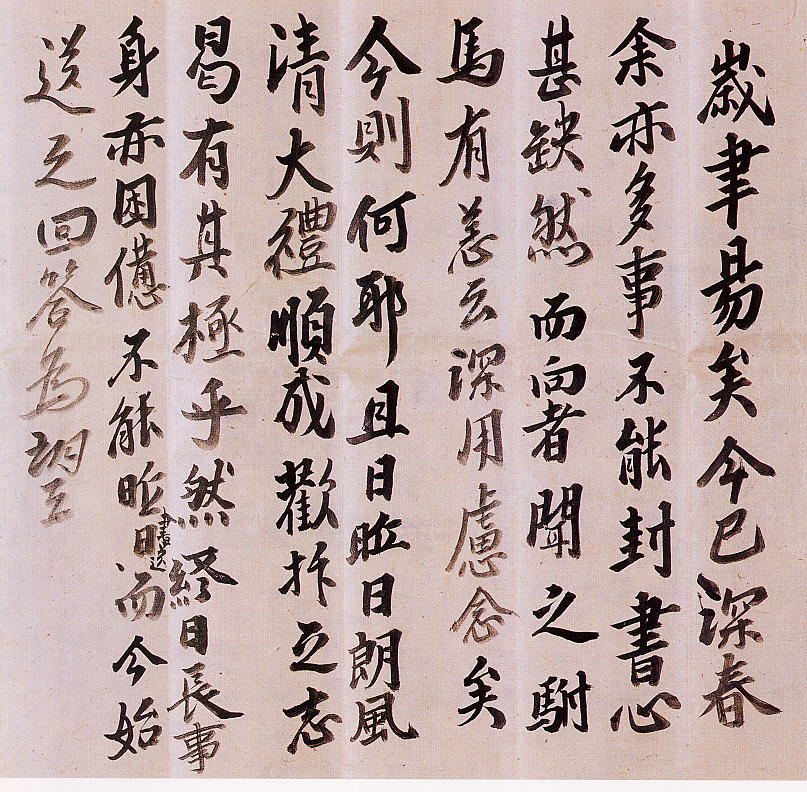 歲聿易矣今已深春
余亦多事不能封書心
甚缺然而向者聞之駙
馬有恙云深用慮念矣
今則何耶且日昨日朗風
清大禮順成歡抃之志
曷有其極乎然終日長事
身亦困憊不能昨日書送而今始
送之回答為望